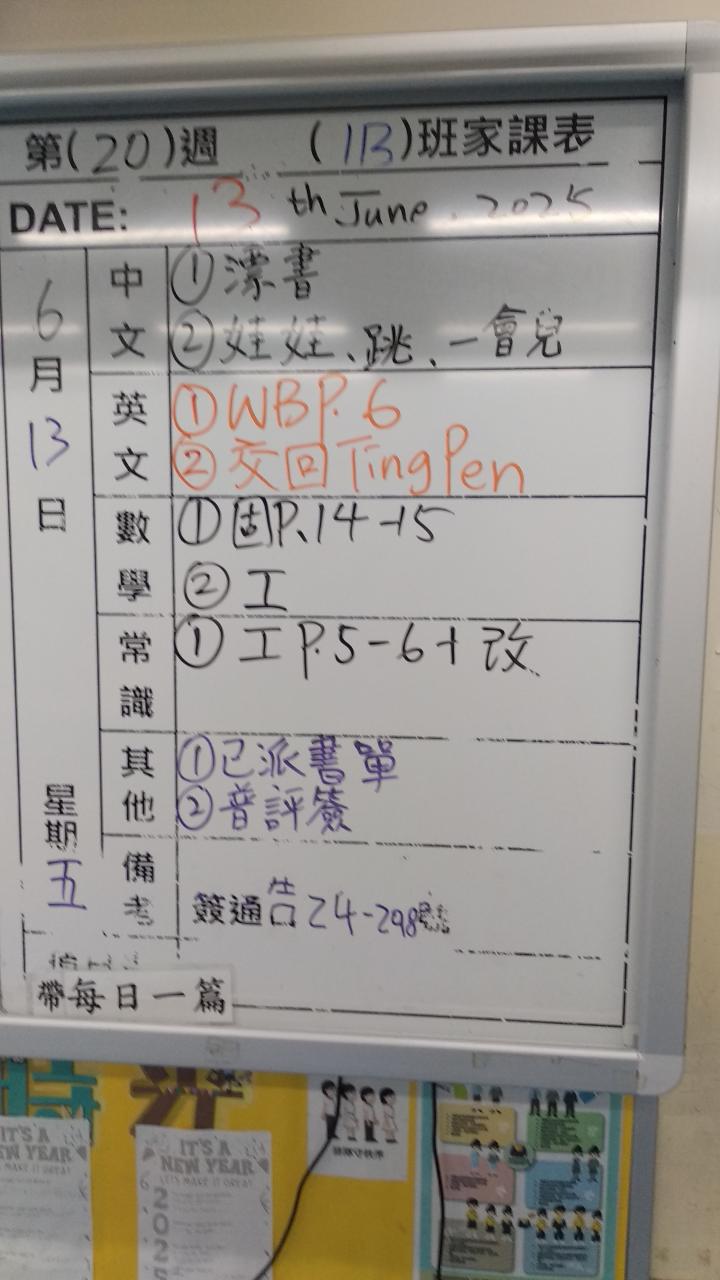 第(20)週 (1B)班家課表
DATE: 13th June. 2025
6月13日
星期五
中文
①漂書
②娃娃、跳、一會兒
英文
①WBP.6
②交回TingPen
數學
①固P.14-15
②工
常識
①工P.5-6+改
其他
①已派書單
②普評簽
備考
簽通告24-298號
帶每日一篇
IT'S A
NEW YEAR
LET'S MAKE IT GREAT
2025
IT'S A
NEW YEAR
MAKE IT GREAT